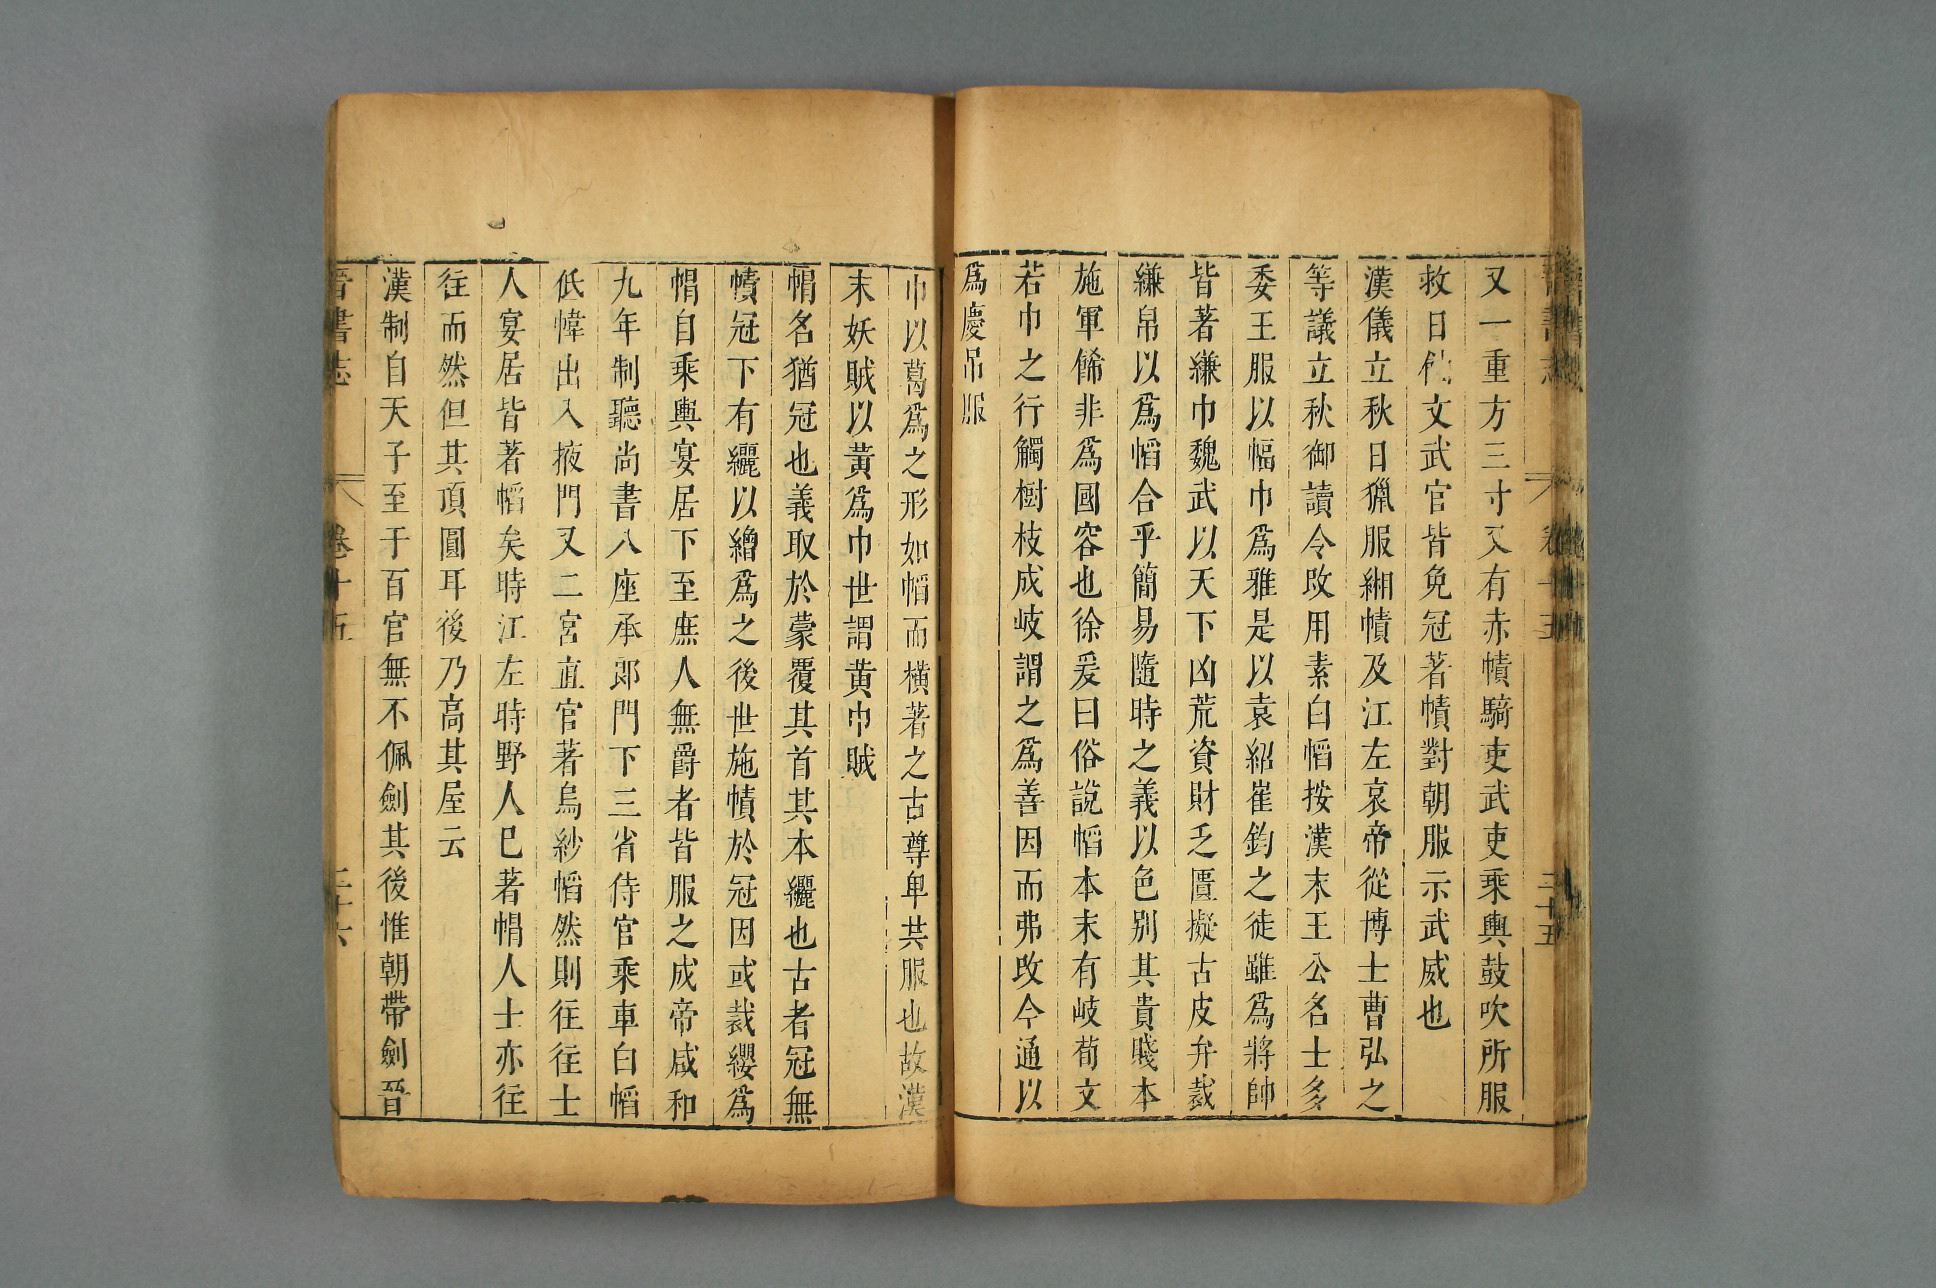 又一重方三寸又有赤幘騎吏武吏乘輿鼓吹所服
救日蝕文武官皆免冠著幘對朝服示武威也
漢儀立秋日獵服緗幘及江左哀帝從博士曹弘之
等議立秋御讀令改用素白㡊按漢末王公名士多
委王服以幅巾爲雅是以袁紹崔鈞之徒雖爲將帥
皆著縑巾魏武以天下凶荒資財乏匱擬古皮弁裁
縑帛以爲㡊合乎簡易隨時之義以色别其貴賤本
施軍飾非爲國容也徐爰曰俗說㡊本末有岐荀文
若巾之行觸樹枝成岐謂之爲善因而弗改今通以
爲慶弔服
巾以葛爲之形如㡊而横著之古尊卑共服也故漢
末妖賊以黄爲巾世謂黄巾賊
帽名猶冠也義取於蒙覆其首其本纚也古者冠無
幘冠下有纚以繒爲之後世施幘於冠因或裁纓爲
帽自乘輿宴居下至庶人無爵者皆服之成帝咸和
九年制聽尚書八座丞郎門下三省侍官乘車白㡊
低幃出入掖門又二宮直官著烏紗㡊然則往往士
人宴居皆著㡊矣時江左時野人已著帽人士亦往
往而然但其頂圓耳後乃高其屋云
漢制自天子至于百官無不佩劍其後惟朝帶劍晉
晉書志 卷十五 二十六